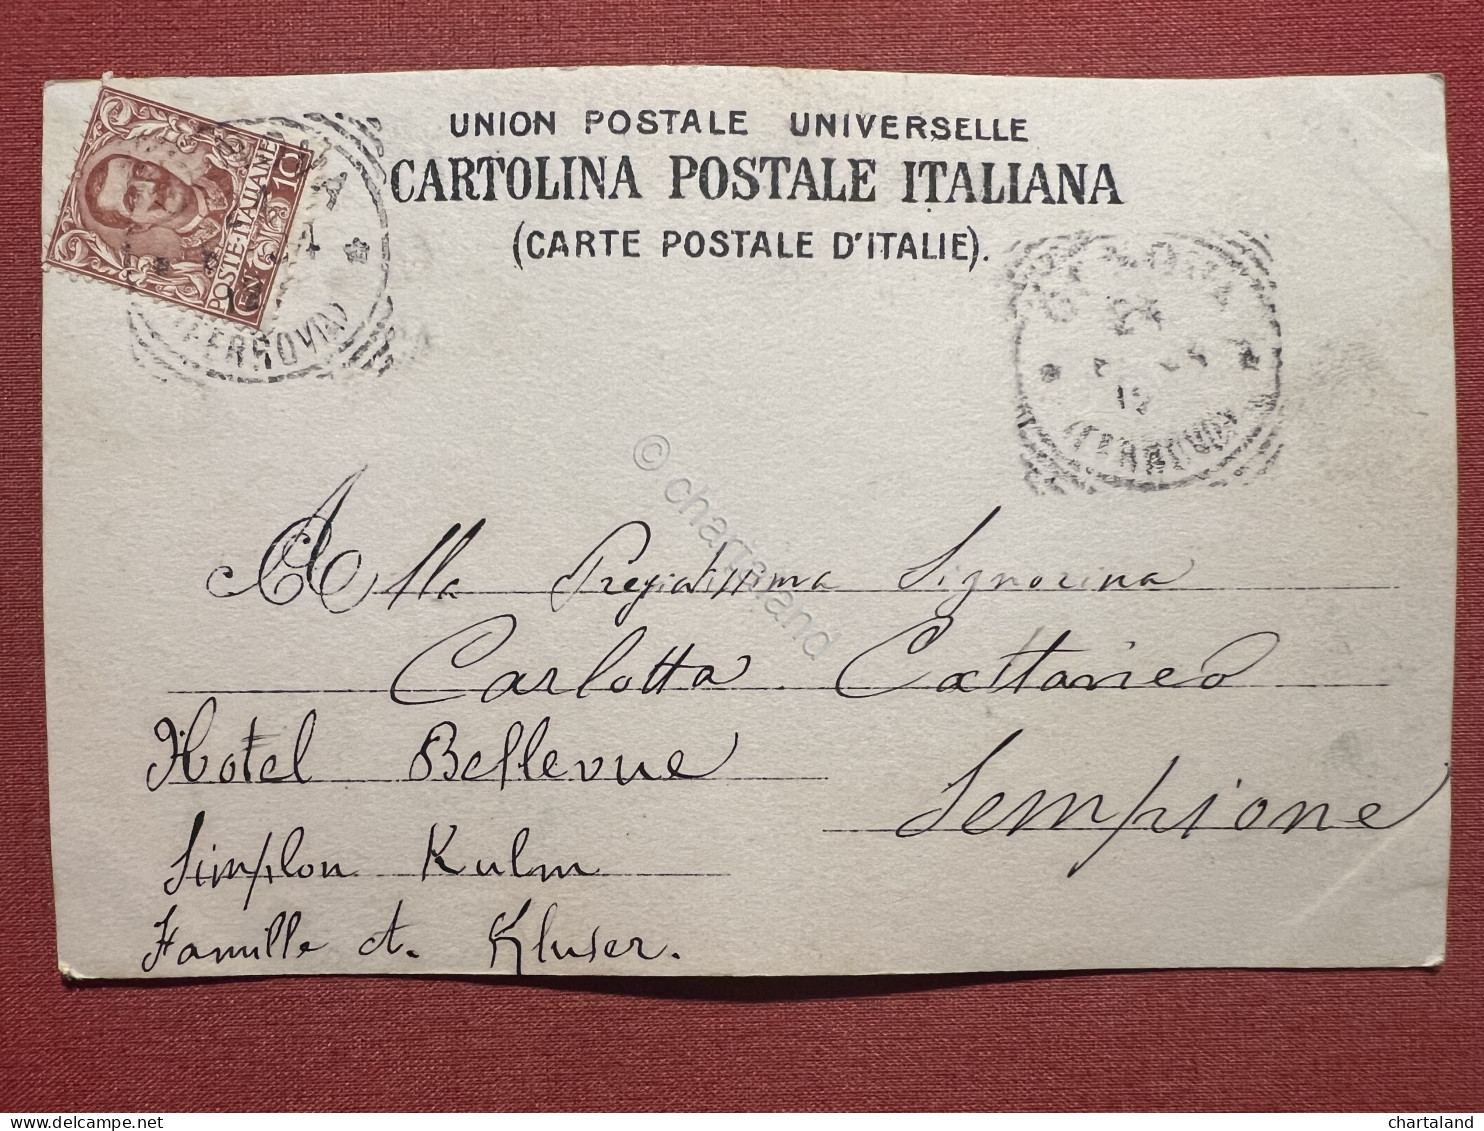 UNION POSTALE UNIVERSELLE
CARTOLINA POSTALE ITALIANA
(CARTE POSTALE D'ITALIE).
POSTE ITALIANE
CEN 10
(FERROVIA)
12
(FERROVIA)
© chartaland
Alla Pregiatissima Signorina
Carlotta Cattaneo
Hotel Bellevue
Sempione
Simplon Kulm
Famille A. Kluser.
delcampe.net
chartaland